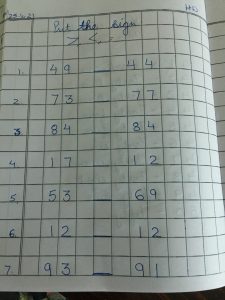 Put the sign
> < =
1. 49 _ 44
2. 73 _ 77
3. 84 _ 84
4. 17 _ 12
5. 53 _ 69
6. 12 _ 12
7. 93 _ 91